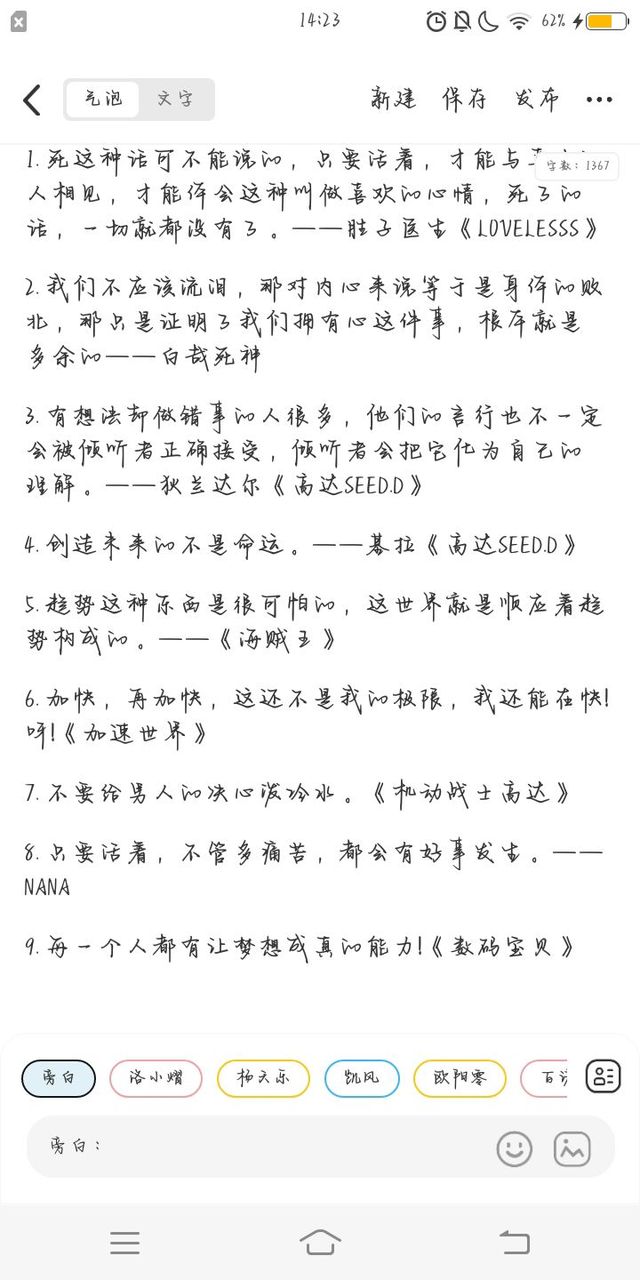 14:23
62%
气泡 文字 新建 保存 发布
字数：1367
1.死这种话可不能说的，只要活着，才能与
人相见，才能体会这种叫做喜欢的心情，死了的
话，一切就都没有了。——肚子医生《LOVELESSS》
2.我们不应该流泪，那对内心来说等于是身体的败
北，那只是证明了我们拥有心这件事，根本就是
多余的——白哉死神
3.有想法却做错事的人很多，他们的言行也不一定
会被倾听者正确接受，倾听者会把它化为自己的
理解。——狄兰达尔《高达SEED.D》
4.创造未来的不是命运。——基拉《高达SEED.D》
5.趋势这种东西是很可怕的，这世界就是顺应着趋
势构成的。——《海贼王》
6.加快，再加快，这还不是我的极限，我还能在快!
呀!《加速世界》
7.不要给男人的决心泼冷水。《机动战士高达》
8.只要活着，不管多痛苦，都会有好事发生。——
NANA
9.每一个人都有让梦想成真的能力!《数码宝贝》
旁白 洛小熠 杨天乐 凯风 欧阳零
旁白：